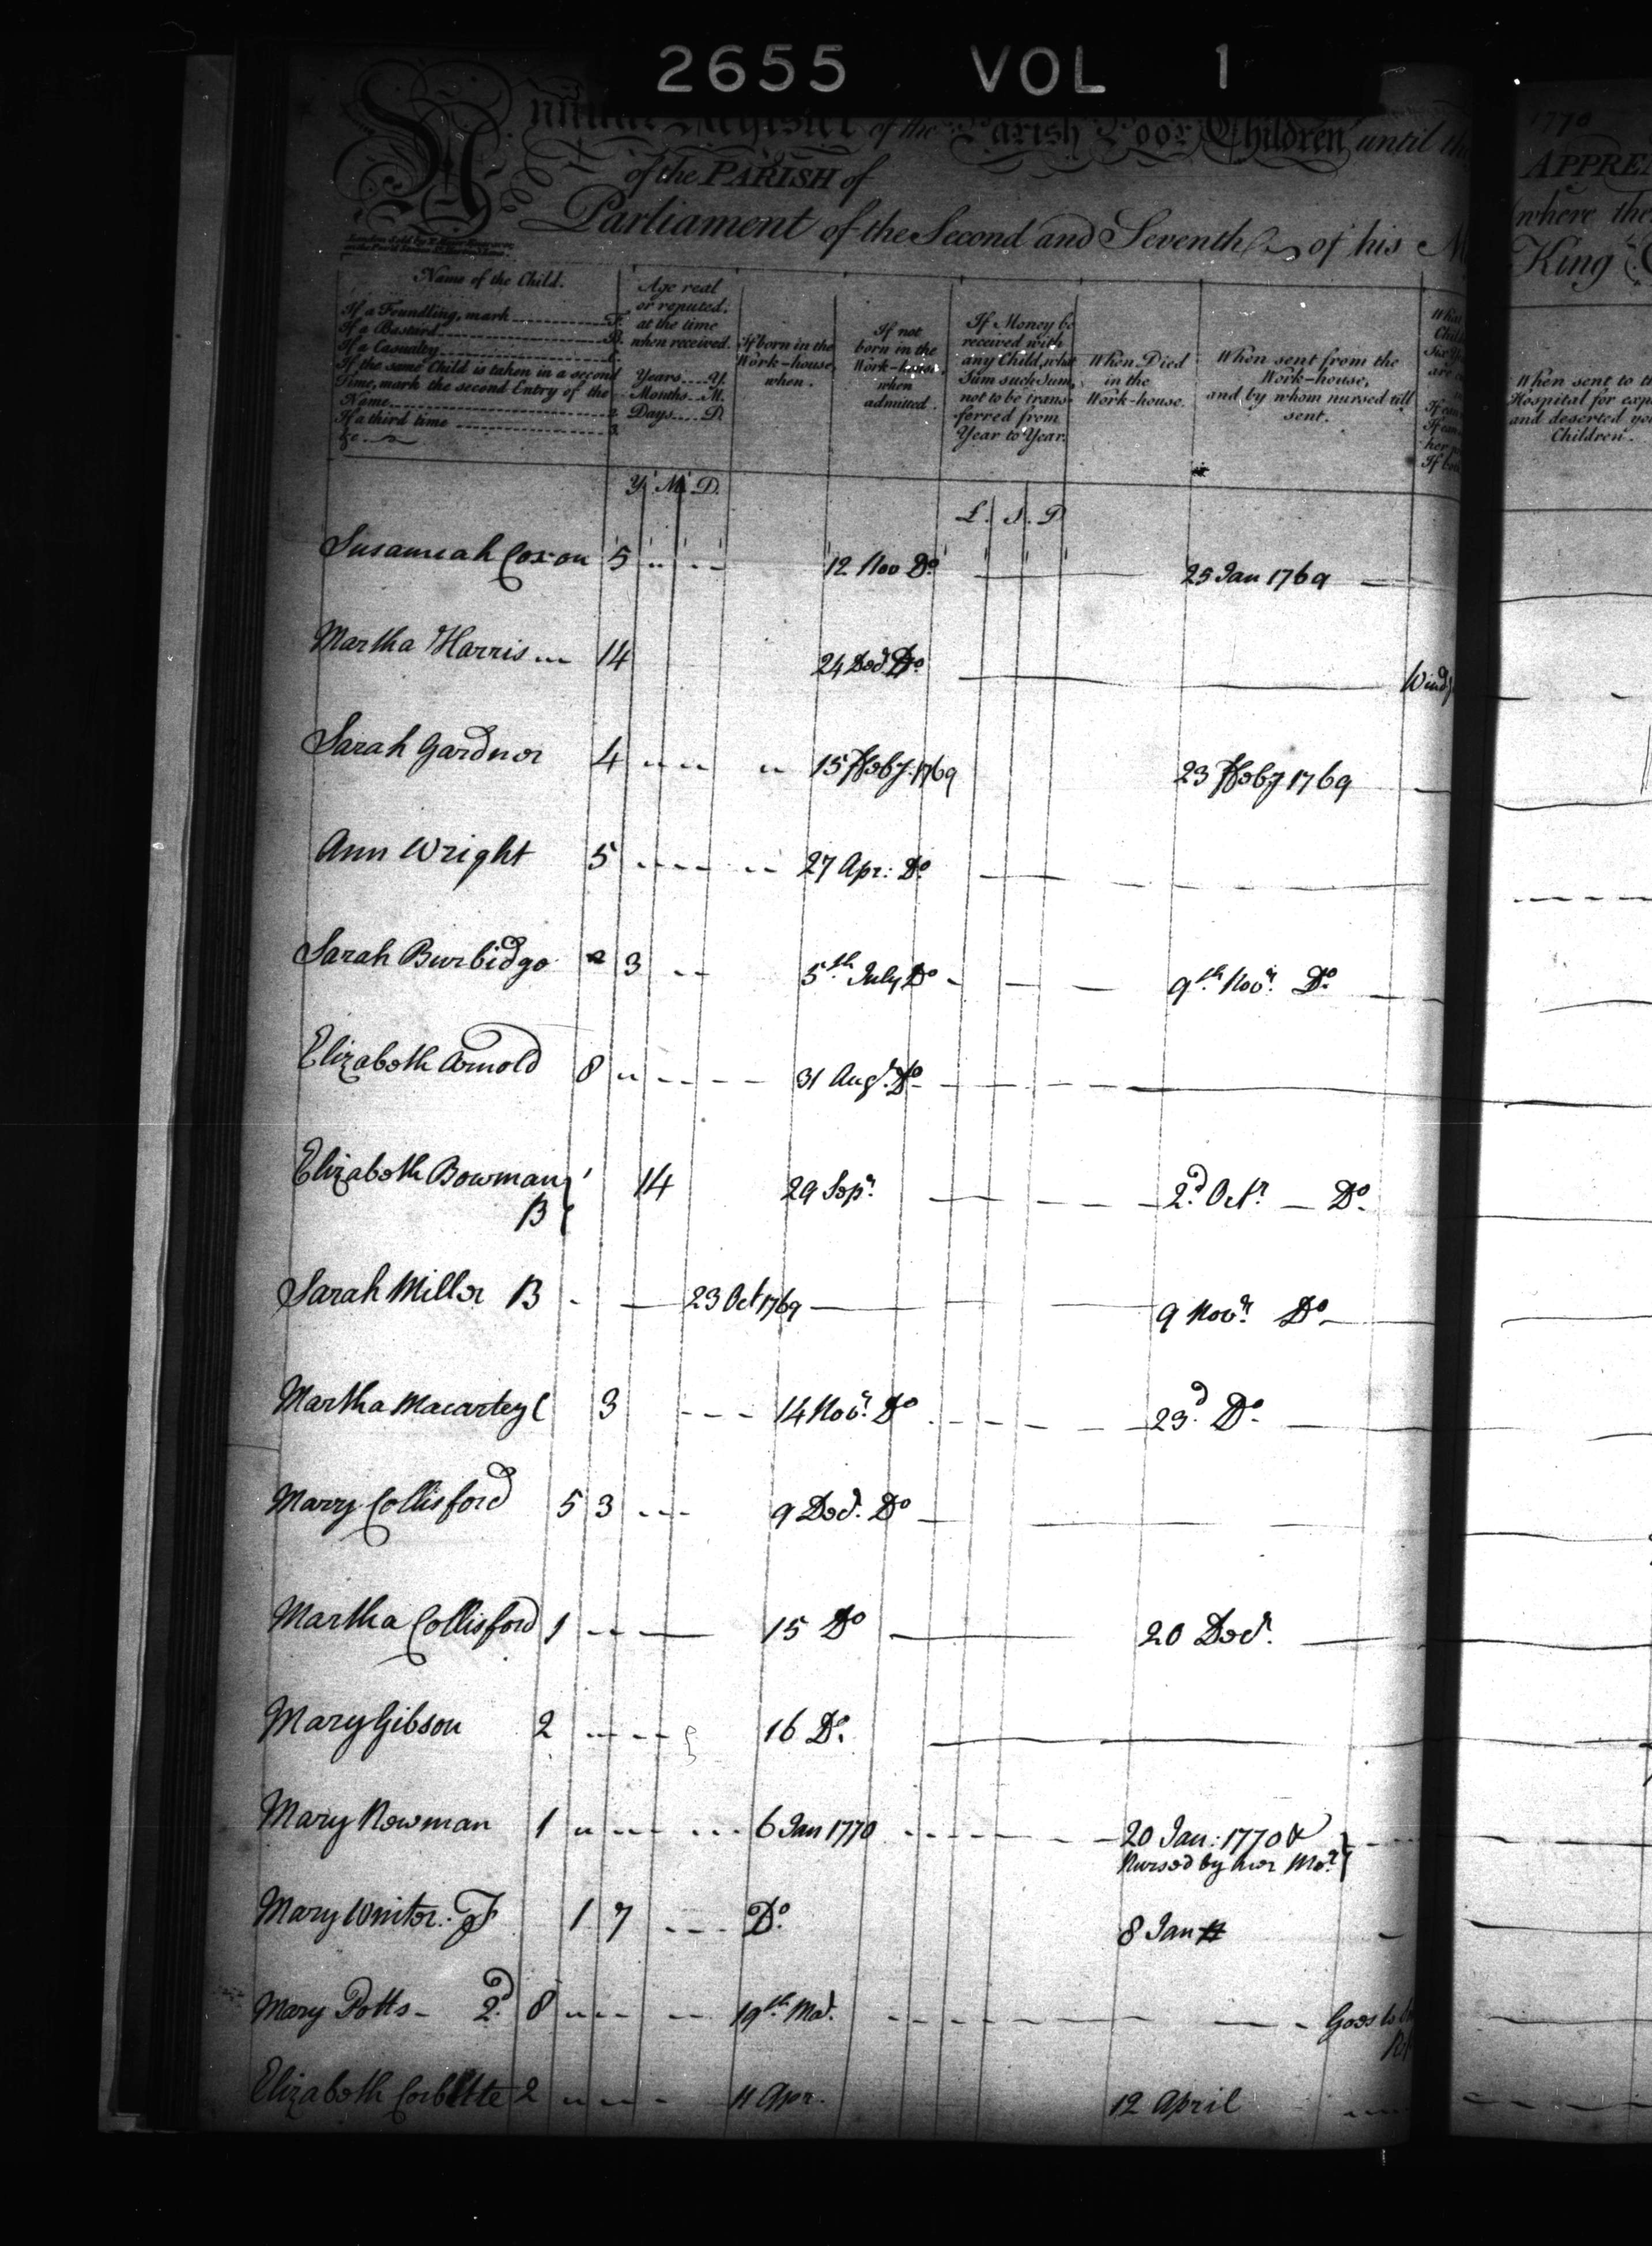 2655 VOL 1
Annual Register of the Parish Poor Children until th
of the PARISH of
Parliament of the Second and Seventh of his M
Name of the Child.
If a Foundling, mark F.
If a Bastard B.
If a Casualty C.
If the same Child is taken in a second
Time, mark the second Entry of the
Name 2.
If a third time 3.
&c
Age real
or reputed,
at the time
when received.
Years Y.
Months M.
Days D.
If born in the
Work-house,
when.
If not
born in the
Work-house,
when
admitted.
If Money be
received with
any Child, what
Sum such Sum,
not to be trans-
ferred from
Year to Year.
When Died
in the
Work-house.
When sent from the
Work-house,
and by whom nursed till
sent.
Y. M. D.
L. S. D
Susannah Coxon 5 12 Nov Do. 25 Jan 1769
Martha Harris 14 24 Decr. Do. Wind
Sarah Gardner 4 15 Feby. 1769 23 Feby 1769
Ann Wright 5 27 Apr: Do.
Sarah Burbidge 2 3 5th July Do 9th Novr. Do.
Elizabeth Arnold 8 31 Augt. Do.
Elizabeth Bowman 14 29 Sepr. 2d. Octr. Do.
B
Sarah Miller B 23 Oct 1769 9 Novr. Do.
Martha Macartey C 3 14 Novr. Do 23d. Do.
Mary Collisford 5 3 9 Decr. Do
Martha Collisford 1 15 Do 20 Decr.
Mary Gibson 2 16 Do.
Mary Newman 1 6 Jan 1770 20 Jan: 1770 &
Nursed by her Mor.
Mary Winter. F 1 7 Do. 8 Jan
Mary Potts 2d. 8 19th Mar. Goes to
Elizabeth Corbette 2 11 Apr. 12 April
1770
APPRE
where the
King
When sent to t
Hospital for exp
and deserted yo
Children.